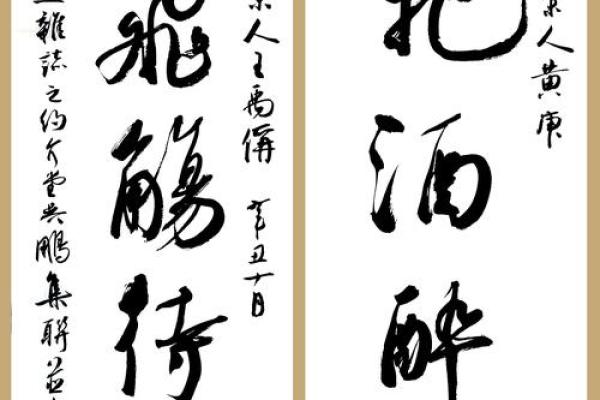 宋人黄庚
把酒醉
宋人王禹偁 辛丑十月
飛觴待
雜誌之約介堂吳鵬集聯並